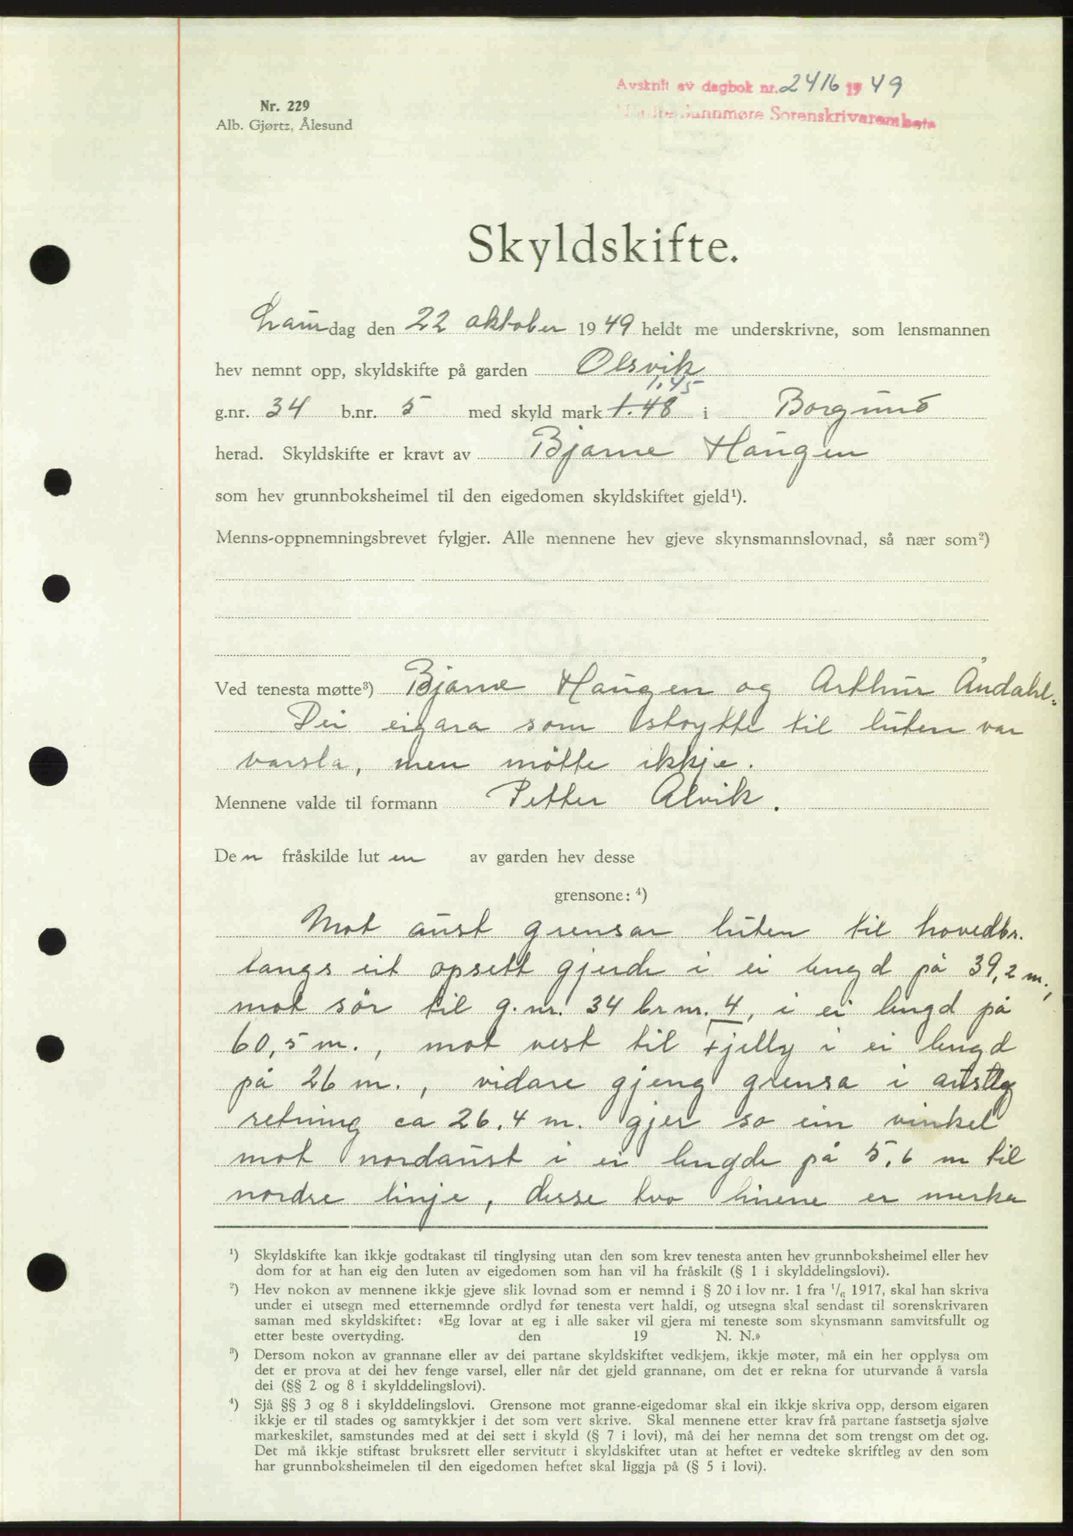 Avskrift av dagbok nr. 2416 1949
Sunnmøre Sorenskrivarembete
Nr. 229
Alb. Gjørtz, Ålesund
Skyldskifte.
Laurdag den 22 oktober 1949 heldt me underskrivne, som lensmannen
hev nemnt opp, skyldskifte på garden Olsvik
1.45
g.nr. 34 b.nr. 5 med skyld mark 1.48 i Borgund
herad. Skyldskifte er kravt av Bjarne Haugen
som hev grunnboksheimel til den eigedomen skyldskiftet gjeld¹).
Menns-oppnemningsbrevet fylgjer. Alle mennene hev gjeve skynsmannslovnad, så nær som²)
Ved tenesta møtte³) Bjarne Haugen og Arthur Åndahl.
Dei eigara som støytte til luten var
varsla, men møtte ikkje.
Mennene valde til formann Petter Alvik.
Den fråskilde luten av garden hev desse
grensone: ⁴)
Mot aust grensar luten til hovedbr.
langs eit opsett gjerde i ei lengd på 39,2 m.,
mot sør til g.nr. 34 br.nr. 4, i ei lengd på
60,5 m., mot vest til Fjelly i ei lengd
på 26 m., vidare gjeng grensa i austleg
retning ca 26.4 m. gjer so ein vinkel
mot nordaust i ei lengde på 5.6 m til
nordre linje, desse tvo linene er merka
¹) Skyldskifte kan ikkje godtakast til tinglysing utan den som krev tenesta anten hev grunnboksheimel eller hev
dom for at han eig den luten av eigedomen som han vil ha fråskilt (§ 1 i skylddelingslovi).
²) Hev nokon av mennene ikkje gjeve slik lovnad som er nemnd i § 20 i lov nr. 1 fra ¹/₆ 1917, skal han skriva
under ei utsegn med etternemnde ordlyd før tenesta vert haldi, og utsegna skal sendast til sorenskrivaren
saman med skyldskiftet: «Eg lovar at eg i alle saker vil gjera mi teneste som skynsmann samvitsfullt og
etter beste overtyding. den 19 N. N.»
³) Dersom nokon av grannane eller av dei partane skyldskiftet vedkjem, ikkje møter, må ein her opplysa om
det er prova at dei hev fenge varsel, eller når det gjeld grannane, om det er rekna for uturvande å varsla
dei (§§ 2 og 8 i skylddelingslovi).
⁴) Sjå §§ 3 og 8 i skylddelingslovi. Grensone mot granne-eigedomar skal ein ikkje skriva opp, dersom eigaren
ikkje er til stades og samtykkjer i det som vert skrive. Skal mennene etter krav frå partane fastsetja sjølve
markeskilet, samstundes med at dei sett i skyld (§ 7 i lovi), må dei her nemna det som trengst om det og.
Det må ikkje stiftast bruksrett eller servitutt i skyldskiftet utan at heftet er vedteke skriftleg av den som
har grunnboksheimelen til den eigedomen heftet skal liggja på (§ 5 i lovi).